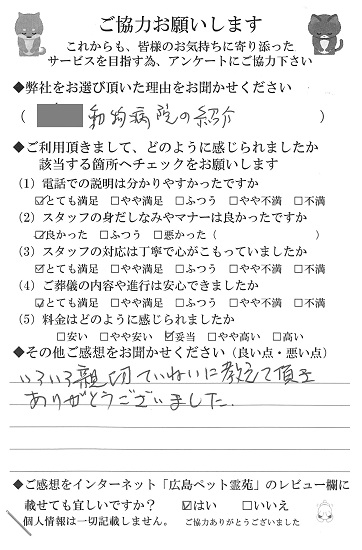 ご協力お願いします
これからも、皆様のお気持ちに寄り添った
サービスを目指す為、アンケートにご協力下さい
◆弊社をお選び頂いた理由をお聞かせください
( 動物病院の紹介 )
◆ご利用頂きまして、どのように感じられましたか
該当する箇所へチェックをお願いします
(1) 電話での説明は分かりやすかったですか
☑とても満足 □やや満足 □ふつう □やや不満 □不満
(2) スタッフの身だしなみやマナーは良かったですか
☑良かった □ふつう □悪かった ( )
(3) スタッフの対応は丁寧で心がこもっていましたか
☑とても満足 □やや満足 □ふつう □やや不満 □不満
(4) ご葬儀の内容や進行は安心できましたか
☑とても満足 □やや満足 □ふつう □やや不満 □不満
(5) 料金はどのように感じられましたか
□安い □やや安い ☑妥当 □やや高い □高い
◆その他ご感想をお聞かせください (良い点・悪い点)
いろいろ親切ていねいに教えて頂き
ありがとうございました.
◆ご感想をインターネット「広島ペット霊苑」のレビュー欄に
載せても宜しいですか? ☑はい □いいえ
個人情報は一切記載しません。 ご協力ありがとうございました